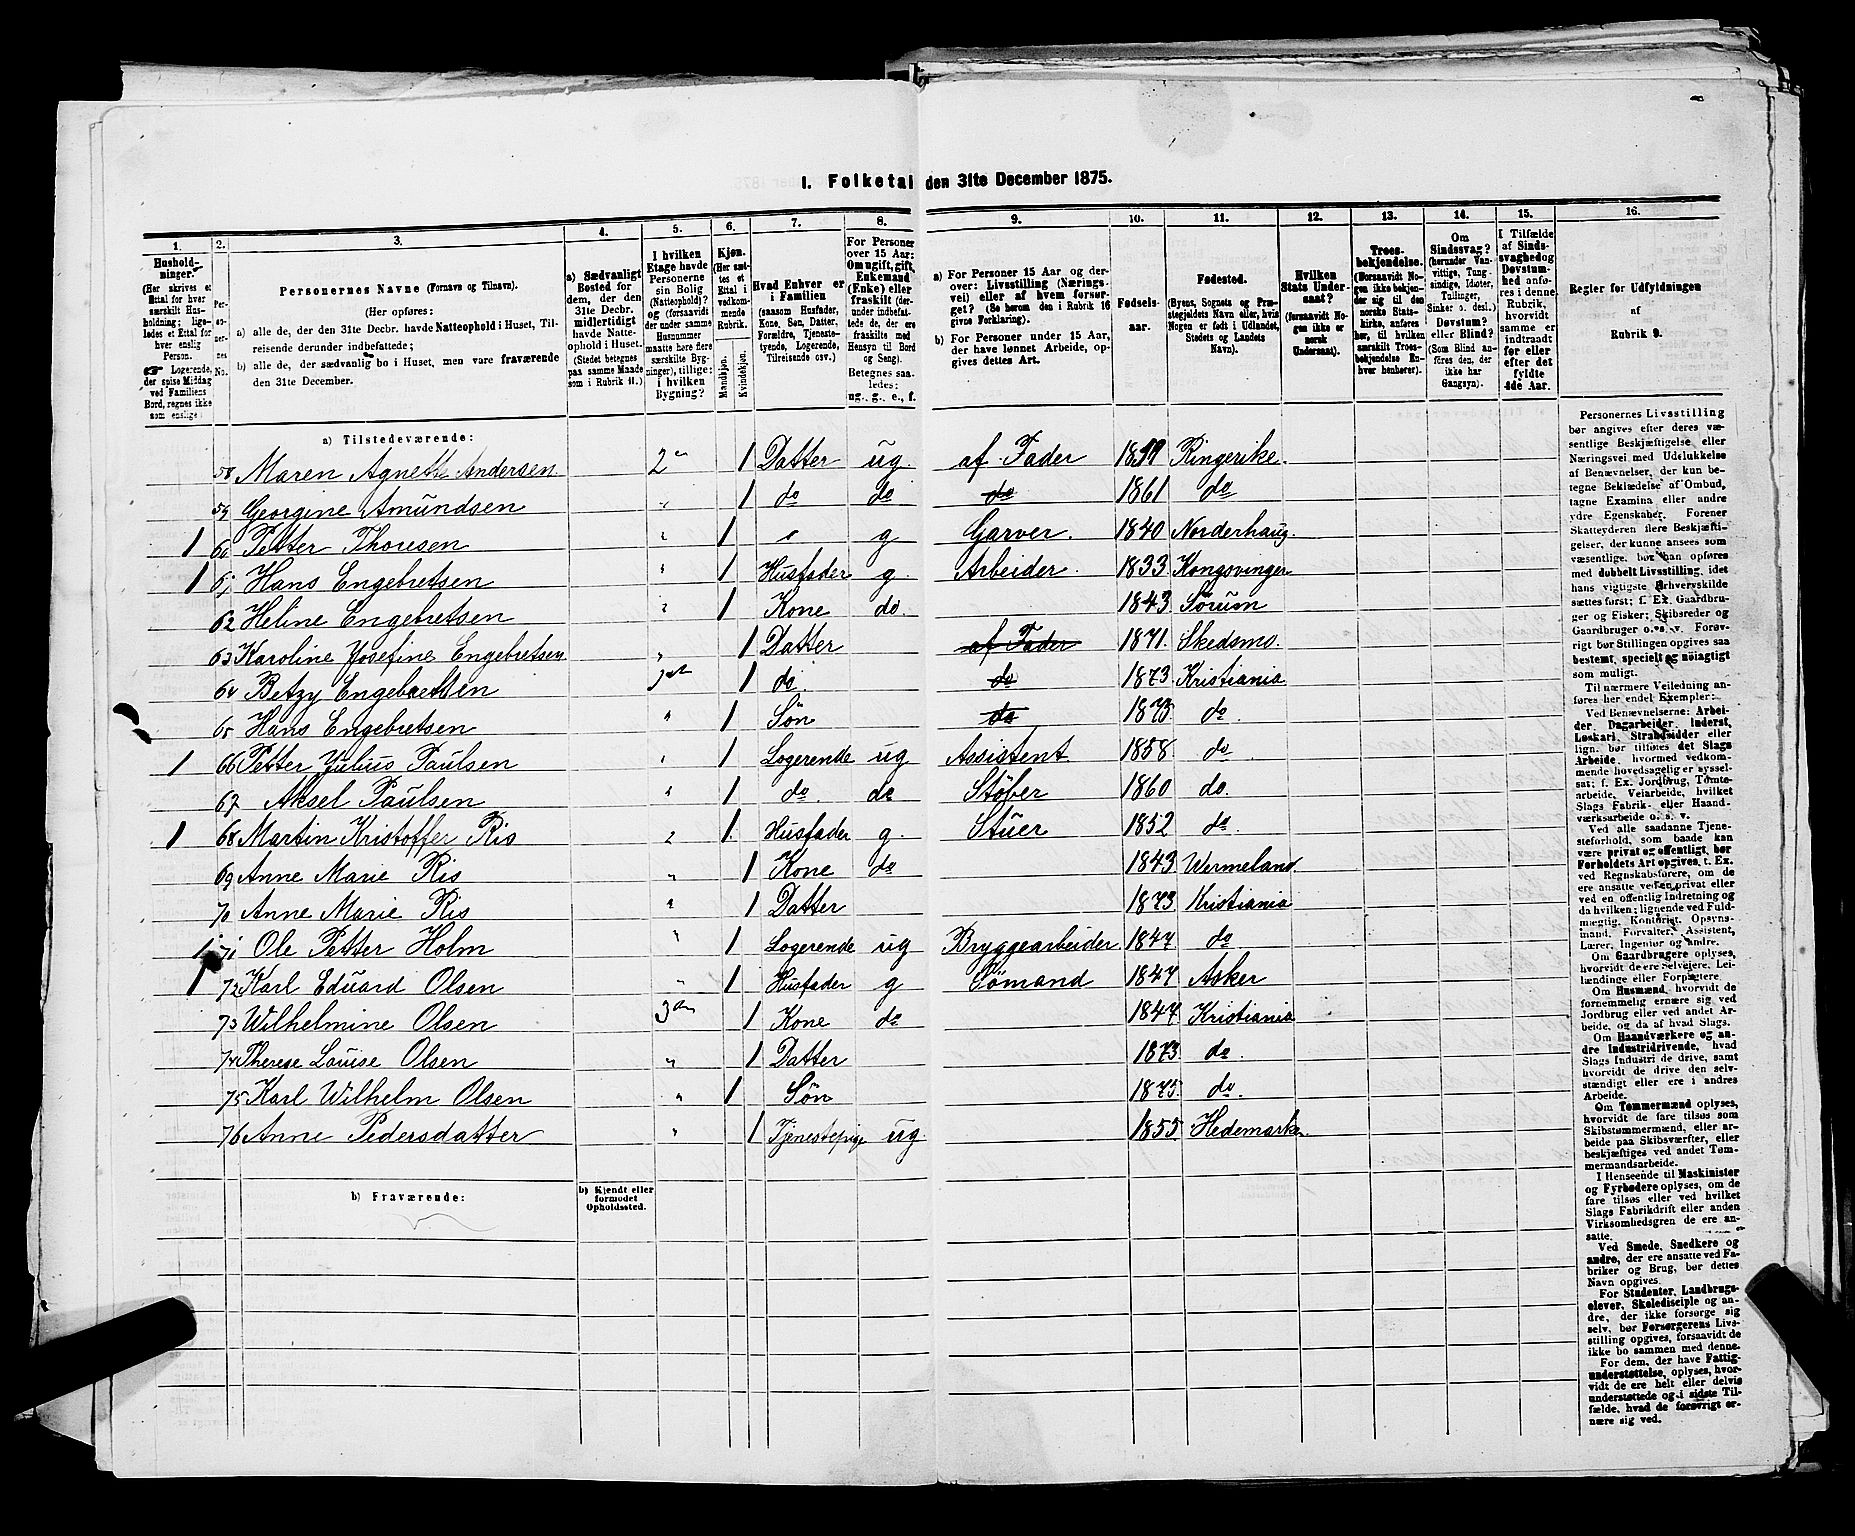 I. Folketal den 31te December 1875.
1. 2. 3. 4. 5. 6. 7. 8. 9. 10. 11. 12. 13. 14. 15. 16.
Husholdninger.
(Her skrives et Ettal for hver særskilt Husholdning; ligeledes et Ettal for hver enslig Person.
☞ Logerende, der spise Middag ved Familiens Bord, regnes ikke som enslige.)
Personernes No.
Personernes Navne (Fornavn og Tilnavn).
(Her opføres:
a) alle de, der den 31te Decbr. havde Natteophold i Huset, Tilreisende derunder indbefattede;
b) alle de, der sædvanlig bo i Huset, men vare fraværende den 31te December.
a) Sædvanligt Bosted for dem, der den 31te Decbr. midlertidigt havde Natteophold i Huset. (Stedet betegnes paa samme Maade som i Rubrik 11.)
I hvilken Etage havde Personerne sin Bolig (Natteophold)? og (forsaavidt der under samme Husnummer maatte høre flere særskilte Bygninger), tillige: i hvilken Bygning?
Kjøn. (Her sættes et Ettal i vedkommende Rubrik.
Mandkjøn. Kvindekjøn.
Hvad Enhver er i Familien (saasom Husfader, Kone, Søn, Datter, Forældre, Tjenestetyende, Logerende, Tilreisende osv.)
For Personer over 15 Aar: Om ugift, gift, Enkemand (Enke) eller fraskilt (derunder indbefattede de, der ere fraskilte med Hensyn til Bord og Seng). Betegnes saaledes: ug., g., e., f.
a) For Personer 15 Aar og derover: Livsstilling (Næringsvei) eller af hvem forsørget? (Se herom den i Rubrik 16 givne Forklaring).
b) For Personer under 15 Aar, der have lønnet Arbeide, opgives dettes Art.
Fødselsaar.
Fødested.
(Byens, Sognets og Præstegjeldets Navn, eller hvis Nogen er født i Udlandet, Stedets og Landets Navn).
Hvilken Stats Undersaat? (forsaavidt Nogen ikke er norsk Undersaat).
Troesbekjendelse. (Forsaavidt Nogen ikke bekjender sig til den norske Statskirke, anføres her, til hvilken særskilt Troesbekjendelse Enhver henhører).
Om Sindssvag? (herunder Vanvittige, Tungsindige, Idioter, Tullinger, Sinker o. desl.) Døvstum? eller Blind? (Som Blind anføres den, der ikke har Gangsyn).
I Tilfælde af Sindssvaghed og Døvstumhed anføres i denne Rubrik, hvorvidt samme er indtraadt før eller efter det fyldte 4de Aar.
Regler for Udfyldningen af Rubrik 9.
a) Tilstedeværende:
58 Maren Agnette Andersen 2en 1 Datter ug. af Fader 1859 Ringerike.
59 Georgine Amundsen " 1 do do do 1861 do
1 60 Petter Thoresen " 1 " g Garver. 1840 Norderhaug.
1 61 Hans Engebretsen " 1 Husfader g. Arbeider. 1833 Kongsvinger
62 Heline Engebretsen " 1 Kone do 1843 Sørum
63 Karoline Josefine Engebretsen " 1 Datter af Fader 1871. Skedsmo.
64 Betzy Engebretsen 1 do do 1873. Kristiania
65 Hans Engebretsen " 1 Søn do 1875 do.
1 66 Petter Julius Paulsen " 1 Logerende ug Assistent 1858 do
67 Aksel Paulsen " 1 do. do Støber 1860 do.
1 68 Martin Kristoffer Ris " 1. Husfader g. Stuer 1852 do
69 Anne Marie Ris " 1 Kone do 1843 Wermeland.
70 Anne Marie Ris " 1 Datter 1873 Kristiania
1 71 Ole Petter Holm " 1 Logerende ug Bryggearbeider 1847 do
1 72 Karl Eduard Olsen " 1 Husfader g Sømand 1847 Asker
73 Wilhelmine Olsen 1 Kone do 1847 Kristiania
74 Therese Louise Olsen " 1 Datter 1873. do.
75 Karl Wilhelm Olsen " 1 Søn 1875. do.
76 Anne Pedersdatter " 1 Tjenestepige ug. 1855 Hedemarken.
b) Fraværende:
b) Kjendt eller formodet Opholdssted.
Personernes Livsstilling
bør angives efter deres væ-
sentlige Beskjæftigelse eller
Næringsvei med Udelukkelse
af Benævnelser, der kun be-
tegne Beklædelse af Ombud,
tagne Examina eller andre
ydre Egenskaber. Forener
Skatteyderen flere Beskjæfti-
gelser, der kunne ansees som
væsentlige, bør han opføres
med dobbelt Livsstilling, idet
hans vigtigste Erhvervskilde
sættes først; f. Ex. Gaardbru-
ger og Fisker; Skibsreder og
Gaardbruger o. s. v. Forøv-
rigt bør Stillingen opgives saa
bestemt, specielt og nøiagtigt
som muligt.
Til nærmere Veiledning an-
føres her endel Exempler:
Ved Benævnelserne: Arbei-
der, Dagarbeider, Inderst,
Løskarl, Strandsidder eller
lign. bør tilføies det Slags
Arbeide, hvormed vedkom-
mende hovedsagelig er syssel-
sat; f. Ex. Jordbrug, Tomte-
arbeide, Veiarbeide, hvilket
Slags Fabrik- eller Haand-
værksarbeide o. s. v.
Ved alle saadanne Tjene-
steforhold, som baade kan
være privat og offentligt, bør
Forholdets Art opgives, t. Ex.
ved Regnskabsførere, om de
ere ansatte ved en privat eller
ved en offentlig Indretning og
da hvilken; lignende ved Fuld-
mægtig, Kontorist, Opsyns-
mand, Forvalter, Assistent,
Lærer, Ingeniør og andre.
Om Gaardbrugere oplyses,
hvorvidt de ere Selveiere, Lei-
lændinge eller Forpagtere.
Om Husmænd, hvorvidt de
fornemmelig ernære sig ved
Jordbrug eller ved andet Ar-
beide, og da af hvad Slags.
Om Haandværkere og an-
dre Industridrivende, hvad
Slags Industri de drive, samt
hvorvidt de drive den selv-
stændigt eller ere i andres
Arbeide.
Om Tømmermænd oplyses,
hvorvidt de fare tilsøs som
Skibstømmermænd, eller ar-
beide paa Skibsværfter, eller
beskjæftiges ved andet Tøm-
mermandsarbeide.
I Henseende til Maskinister
og Fyrbødere oplyses, om de
fare tilsøs eller ved hvilket
Slags Fabrikdrift eller anden
Virksomhedsgren de ere an-
satte.
Ved Smede, Snedkere og
andre, der ere ansatte ved Fa-
briker og Brug, bør dettes
Navn opgives.
For Studenter, Landbrugs-
elever, Skoledisciple og an-
dre, der ikke forsørge sig
selv, bør Forsørgerens Livs-
stilling opgives, forsaavidt de
ikke bo sammen med denne.
For dem, der have Fattig-
understøttelse, oplyses, hvor-
vidt de ere helt eller delvis
understøttede og i sidste Til-
fælde, hvad de forøvrigt er-
nære sig ved.